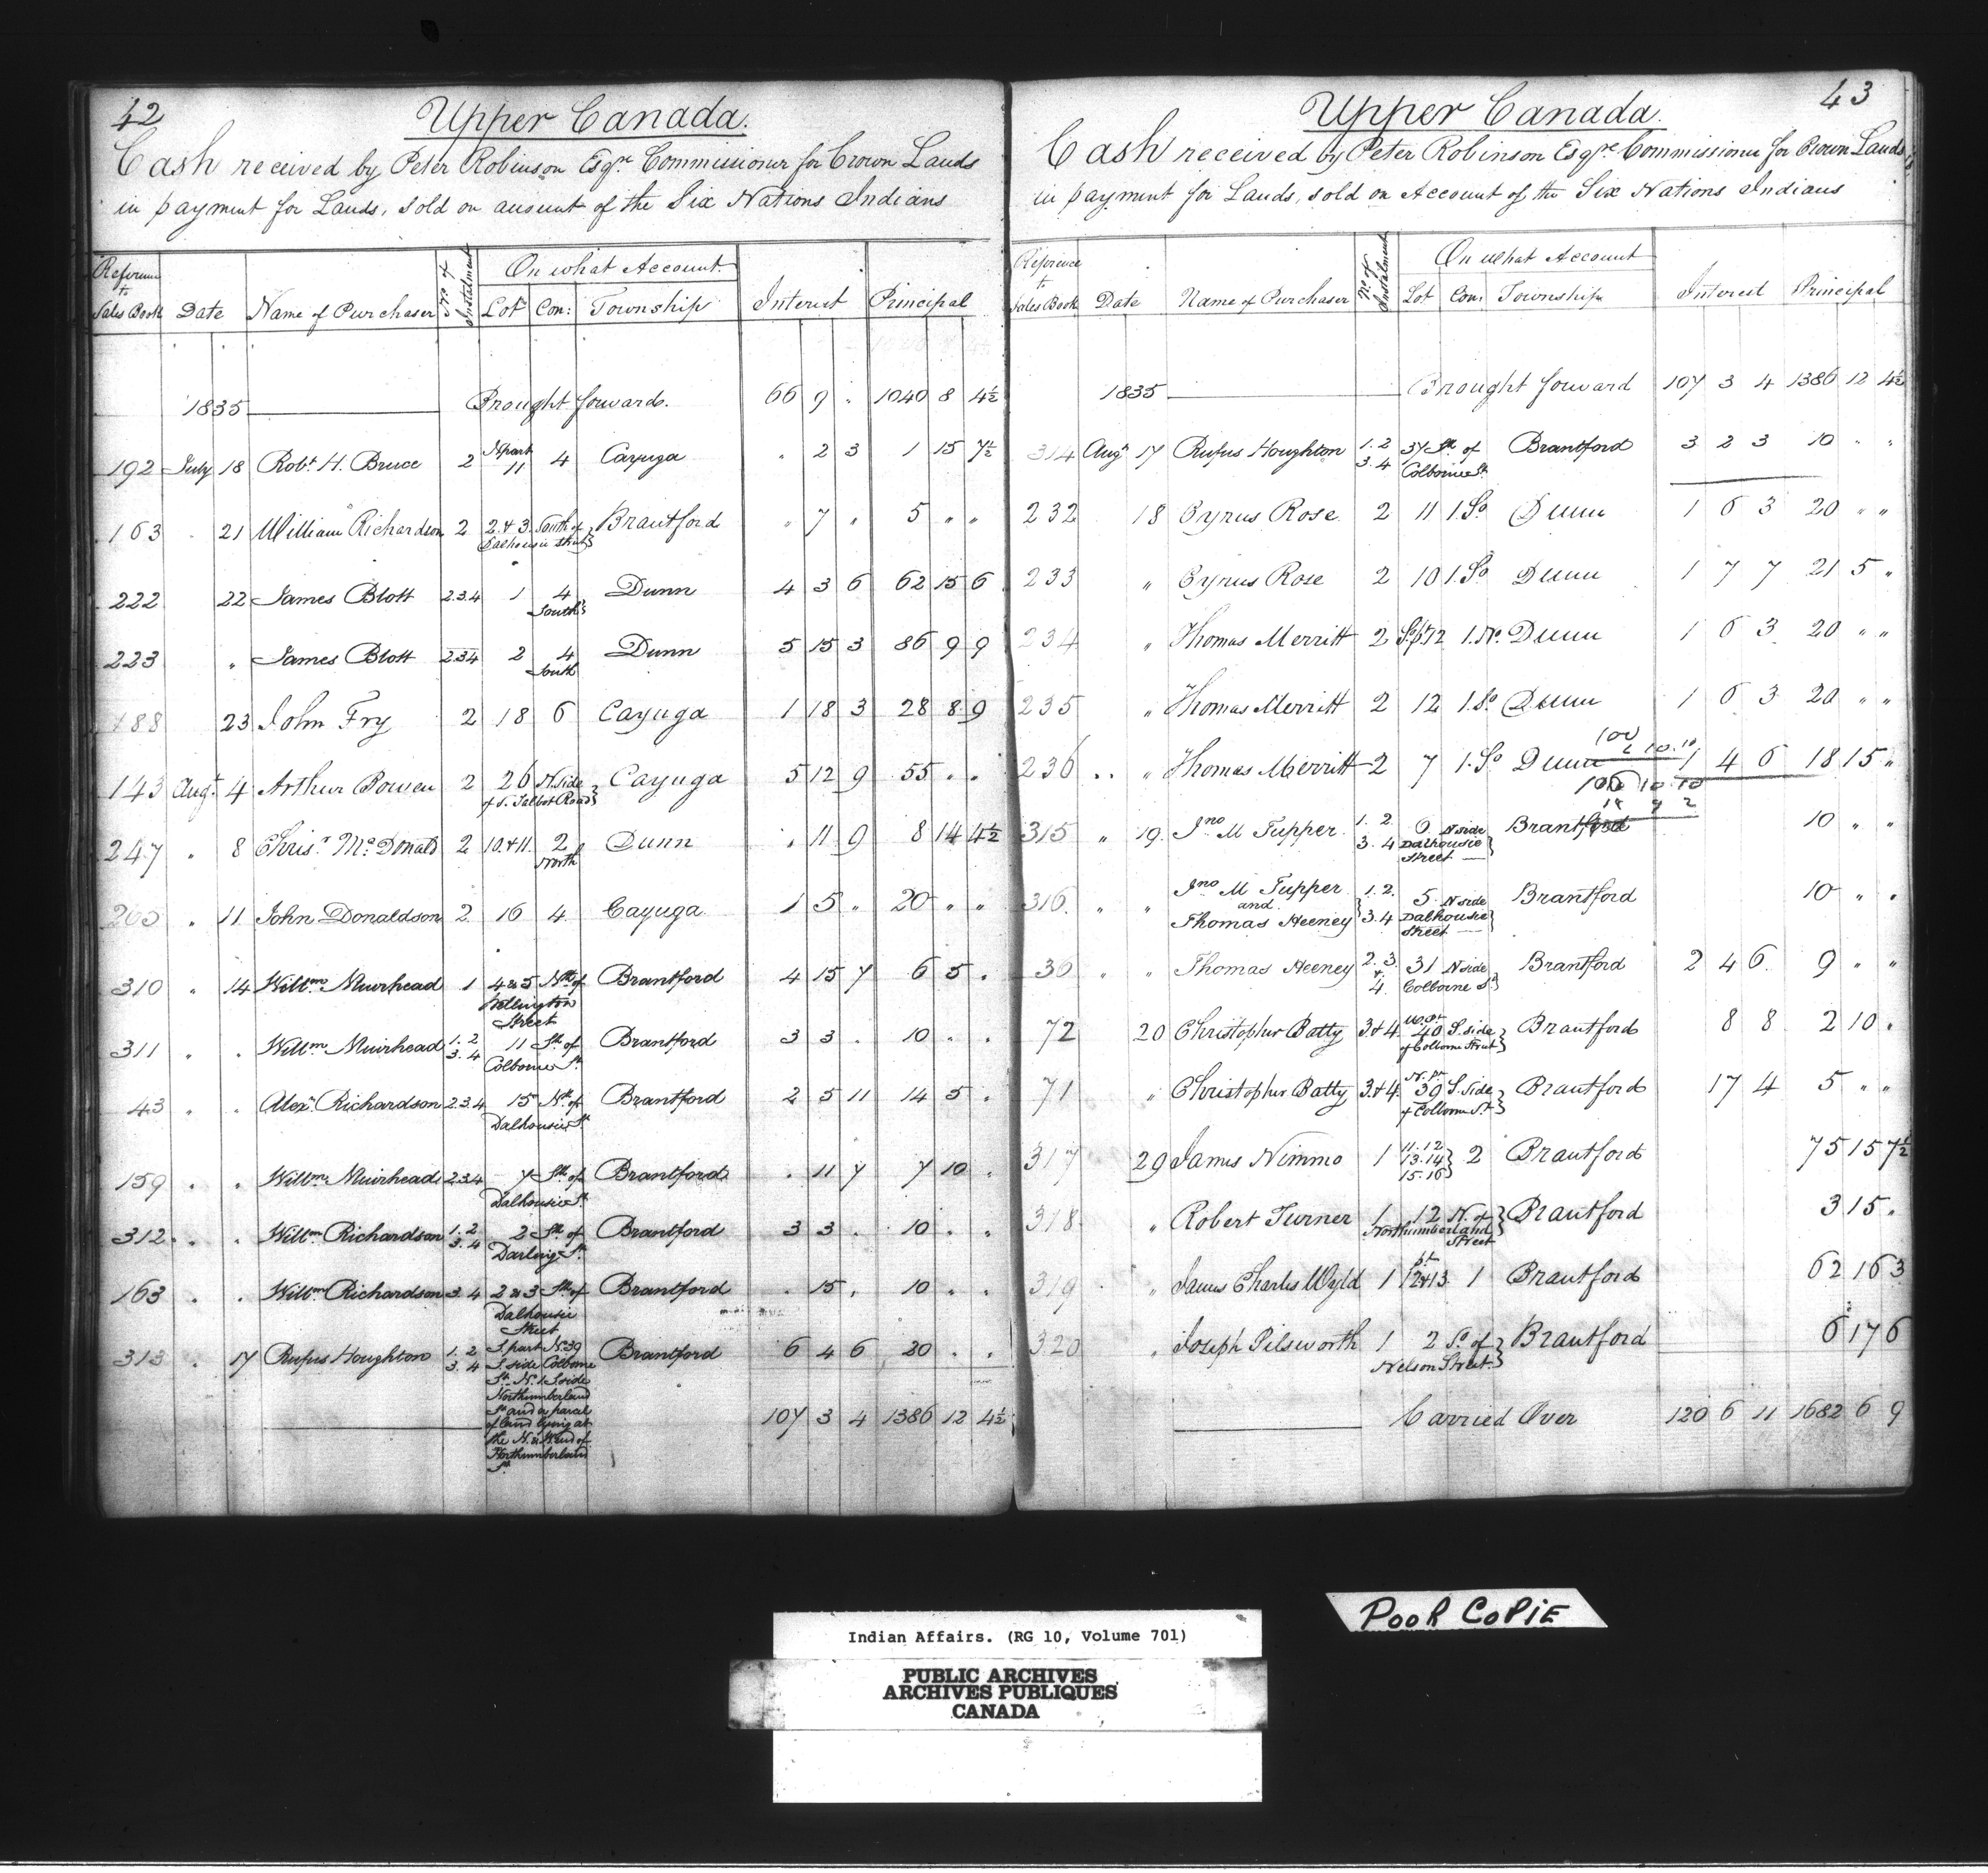 42
Upper Canada.
Cash received by Peter Robinson Esqre. Commissioner for Crown Lands
in payment for Lands, sold on account of the Six Nations Indians
Reference to Sales Book Date Name of Purchaser No. of Instalment On what Account. Lot Con: Township Interest Principal
1835 Brought forward. 66 9 " 1040 8 4½
192 July 18 Robt. H. Bruce 2 N part 11 4 Cayuga " 2 3 1 15 7½
163 21 William Richardson 2 2 & 3 South of Dalhousie Street } Brantford " 7 " 5 " "
222 22 James Blott 2.3.4 1 4 South Dunn 4 3 6 62 15 6
223 " James Blott 2.3.4 2 4 South Dunn 5 15 3 86 9 9
188 23 John Fry 2 18 6 Cayuga 1 18 3 28 8 9
143 Augt. 4 Arthur Bowen 2 26 N. Side of S. Talbot Road } Cayuga 5 12 9 55 " "
247 " 8 Chrisr. McDonald 2 10.&11 2 North Dunn " 11 9 8 14 4½
205 " 11 John Donaldson 2 16 4 Cayuga 1 5 " 20 " "
310 " 14 Willm. Muirhead 1 4 & 5 Nth of Wellington Street Brantford 4 15 7 6 5 "
311 " " Willm. Muirhead 1.2 3.4 11 Sth of Colborne St. Brantford 3 3 " 10 " "
43 " " Alexr. Richardson 2.3.4 15 Nth of Dalhousie St. Brantford 2 5 11 14 5 "
159 " " Willm. Muirhead 2.3.4 7 Sth of Dalhousie St. Brantford " 11 7 7 10 "
312 " " Willm. Richardson 1.2 3.4 2 Sth of Darling St. Brantford 3 3 " 10 " "
163 " " Willm. Richardson 3.4 2 & 3 Sth of Dalhousie Street Brantford " 15 " 10 " "
313 " 17 Rufus Houghton 1.2 3.4 S. part N. 39 S. side Colborne St. No. 1 S. side Northumberland St. and a parcel of land lying at the N. & W. end of Northumberland St. Brantford 6 4 6 20 " "
107 3 4 1386 12 4½
43
Upper Canada.
Cash received by Peter Robinson Esqre. Commissioner for Crown Lands
in payment for Lands, sold on Account of the Six Nations Indians
Reference to Sales Book Date Name of Purchaser No. of Instalment On what Account Lot Con: Township Interest Principal
1835 Brought forward 107 3 4 1386 12 4½
314 Augt. 17 Rufus Houghton 1.2 3.4 37 Sth of Colborne St. Brantford 3 2 3 10 " "
232 18 Cyrus Rose 2 11 1. So Dunn 1 6 3 20 " "
233 " Cyrus Rose 2 10 1. So Dunn 1 7 7 21 5 "
234 " Thomas Merritt 2 12 1. No. Dunn 1 6 3 20 " "
235 " Thomas Merritt 2 12 1. So Dunn 1 6 3 20 " "
236 " Thomas Merritt 2 7 1. So Dunn 1 4 6 18 15 "
315 " 19 Jno. M Tupper 1.2. 3.4 6 N side Dalhousie Street } Brantford 10 " "
316 " " Jno. M Tupper and Thomas Heeney } 1.2. 3.4 5 N side Dalhousie Street } Brantford 10 " "
36 " " Thomas Heeney 2.3. & 4. 31 N side Colborne St. } Brantford 2 4 6 9 " "
72 20 Christopher Batty 3 & 4 40 S. side of Colborne Street } Brantford 8 8 2 10 "
71 " Christopher Batty 3 & 4 N. pt. 39 S. side of Colborne St. } Brantford 17 4 5 " "
317 29 James Nimmo 1 11.12 13.14 15.16 } 2 Brantford 75 15 7½
318 " Robert Turner 1 12 N. of Northumberland Street } Brantford 3 15 "
319 " James Charles Wyld 1 pt 12&13 1 Brantford 62 16 3
320 " Joseph Pilsworth 1 2 So. of Nelson Street } Brantford 6 17 6
Carried Over 120 6 11 1682 6 9
Pooh Copie
Indian Affairs. (RG 10, Volume 701)
PUBLIC ARCHIVES
ARCHIVES PUBLIQUES
CANADA